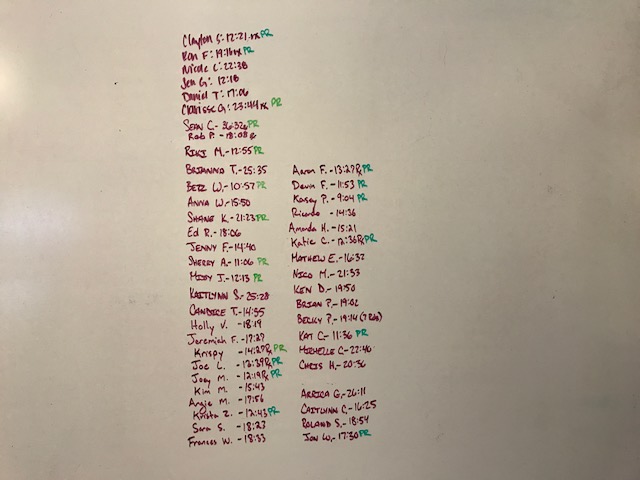 Clayton S: 12:21 rx PR
Ron F: 19:16 rx PR
Nicole C: 22:38
Jen G: 12:18
Daniel T: 17:06
Clarisse G: 23:44 rx PR
SEAN C.- 36:32 PR
Rob P. - 18:08
RIKI M.- 12:55 PR
BRIANNA T.- 25:35
BETZ W.- 10:57 PR
ANNA W.- 15:50
SHANE K.- 21:23 PR
Ed R.- 18:06
JENNY F.- 14:40
SHERRY A.- 11:06 PR
MISSY J.- 12:13 PR
KAITLYNN S.- 25:28
CANDICE T.- 14:55
Holly V. - 18:19
Jeremiah F. - 17:27
Krispy - 14:27 Rx PR
Joe L. - 12:39 Rx PR
Joey M. - 12:19 Rx PR
Kim M. - 15:43
Angie M. - 17:56
Krista Z. - 12:43 PR
Sara S. - 18:23
Frances W. - 18:33
Aaron F. - 13:27 Rx PR
Devin F. - 11:53 PR
Kasey P. - 9:04 PR
Ricardo - 14:36
Amanda H. - 15:21
Katie C. - 12:36 Rx PR
MATHEW E.- 16:32
NICO M.- 21:33
KEN D.- 19:50
BRIAN P.- 19:02
BECKY P.- 19:14
KAT C- 11:36 PR
MICHELLE C- 22:40
CHRIS H.- 20:36
ARRICA G.- 26:11
CAITLYNN C.- 16:25
ROLAND S.- 18:54
JON W.- 17:30 PR